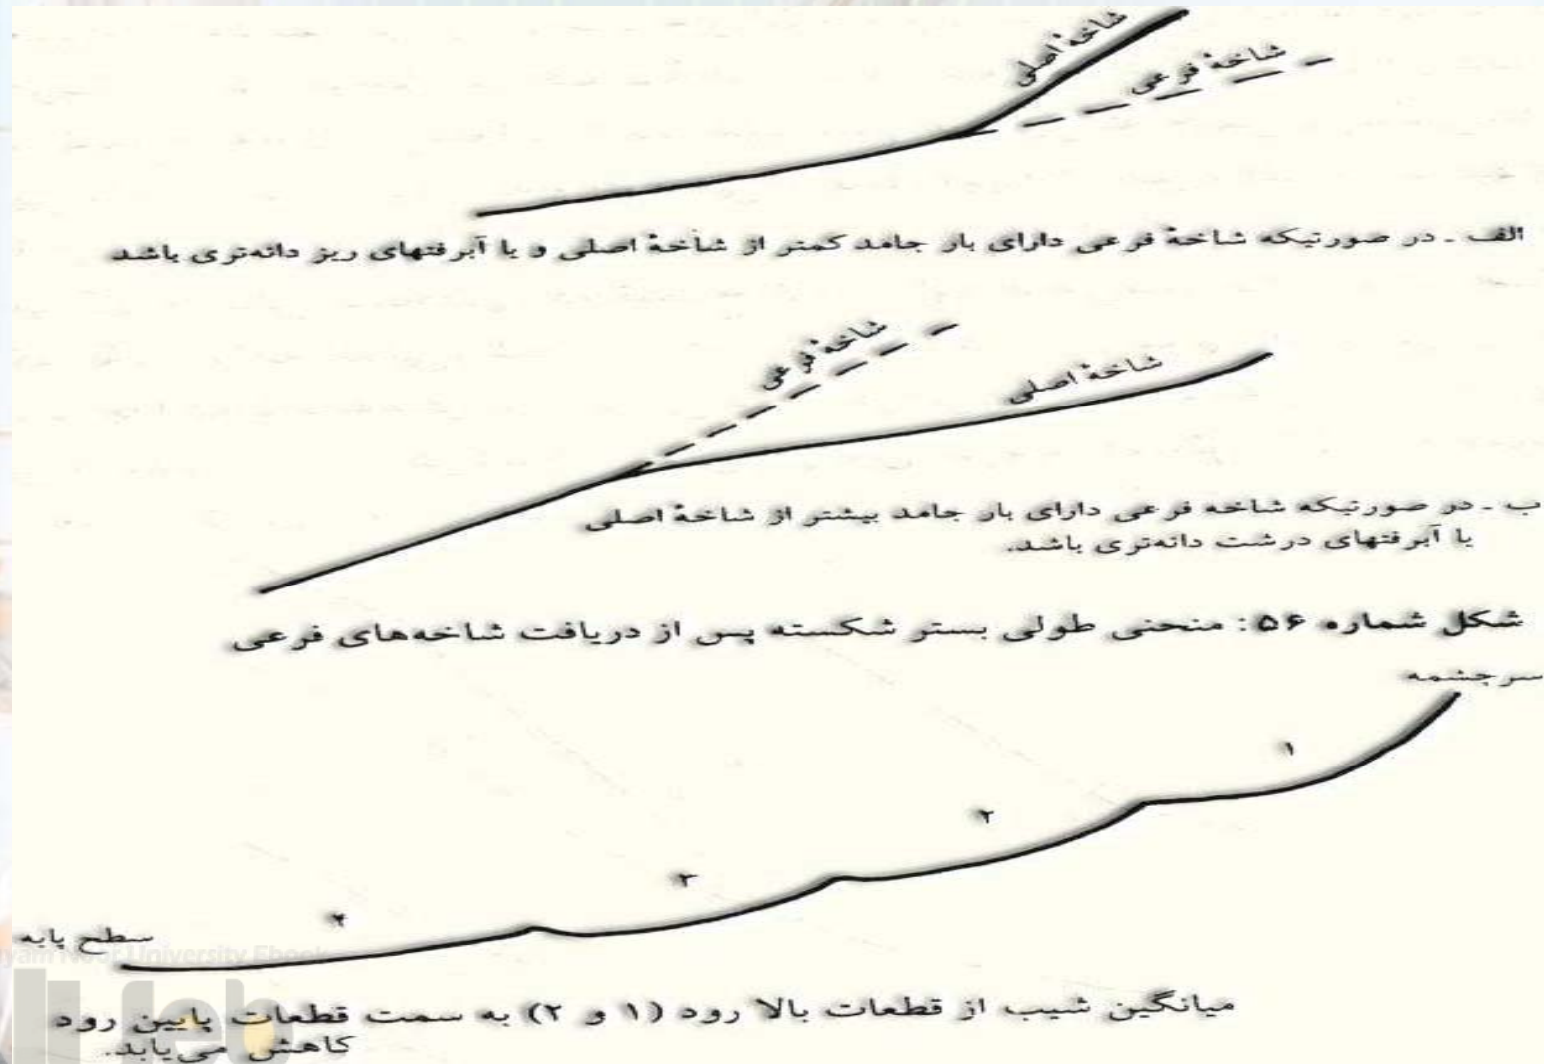 شاخهٔ اصلی
شاخهٔ فرعی
الف ـ در صورتیکه شاخهٔ فرعی دارای بار جامد کمتر از شاخهٔ اصلی و یا آبرفتهای ریز دانه‌تری باشد
شاخهٔ فرعی
شاخهٔ اصلی
ب ـ در صورتیکه شاخه فرعی دارای بار جامد بیشتر از شاخهٔ اصلی
یا آبرفتهای درشت دانه‌تری باشد.
شکل شماره ۵۶: منحنی طولی بستر شکسته پس از دریافت شاخه‌های فرعی
سرچشمه
۱
۲
۳
۴
سطح پایه
University Ebook
میانگین شیب از قطعات بالا رود (۱ و ۲) به سمت قطعات پایین رود
کاهش می‌یابد.